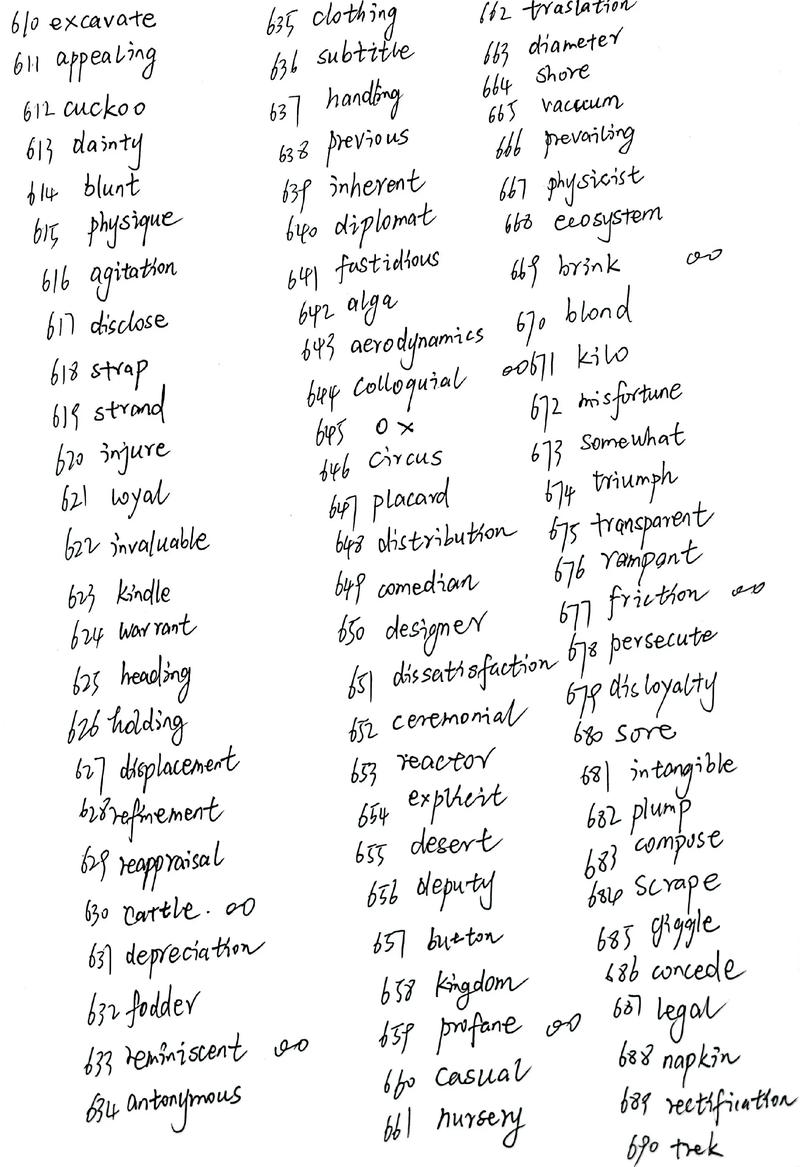 610 excavate
611 appealing
612 cuckoo
613 dainty
614 blunt
615 physique
616 agitation
617 disclose
618 strap
619 strand
620 injure
621 loyal
622 invaluable
623 kindle
624 warrant
625 heading
626 holding
627 displacement
628 refinement
629 reappraisal
630 cattle.
631 depreciation
632 fodder
633 reminiscent
634 antonymous
635 clothing
636 subtitle
637 handling
638 previous
639 inherent
640 diplomat
641 fastidious
642 alga
643 aerodynamics
644 colloquial
645 ox
646 circus
647 placard
648 distribution
649 comedian
650 designer
651 dissatisfaction
652 ceremonial
653 reactor
654 explicit
655 desert
656 deputy
657 button
658 kingdom
659 profane
660 casual
661 nursery
662 traslation
663 diameter
664 shore
665 vacuum
666 prevailing
667 physicist
668 ecosystem
669 brink
670 blond
671 kilo
672 misfortune
673 somewhat
674 triumph
675 transparent
676 rampant
677 friction
678 persecute
679 disloyalty
680 sore
681 intangible
682 plump
683 compose
684 scrape
685 giggle
686 concede
687 legal
688 napkin
689 rectification
690 trek